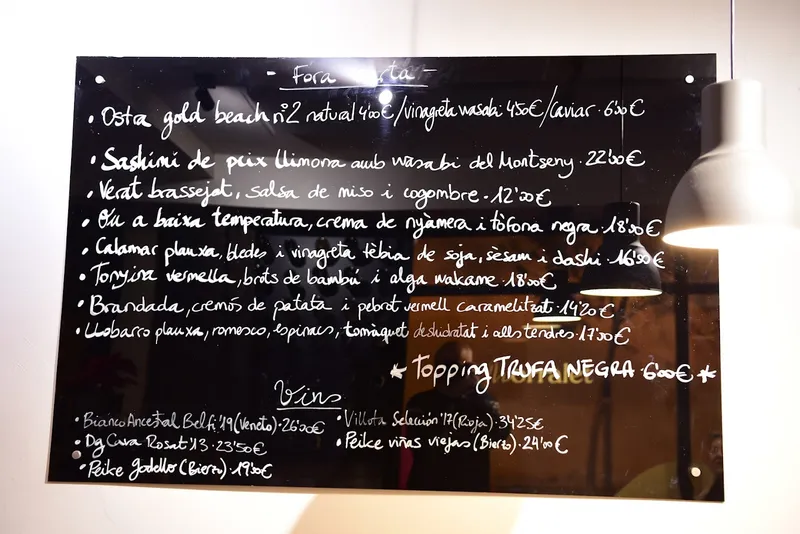 - Fora Carta -
• Ostra gold beach nº2 natural 4'00€/vinagreta wasabi 4'50€/caviar · 6'00€
• Sashimi de peix llimona amb wasabi del Montseny · 22'00€
• Verat brassejat, salsa de miso i cogombre · 12'00€
• Ou a baixa temperatura, crema de nyàmera i tòfona negra · 18'50€
• Calamar planxa, bledes i vinagreta tèbia de soja, sèsam i dashi · 16'50€
• Tonyina vermella, brots de bambú i alga wakame · 18'00€
• Brandada, cremós de patata i pebrot vermell caramelitzat · 14'20€
• Llobarro planxa, romesco, espinacs, tomàquet deshidratat i alls tendres · 17'50€
* Topping TRUFA NEGRA · 6'00€ *
Vins
• Bianco Ancestral Belfi '19 (Veneto) · 26'00€
• Dg Cava Rosat '13 · 23'50€
• Peike godello (Bierzo) · 19'50€
• Villota Selección '17 (Rioja) · 34'25€
• Peike viñas viejas (Bierzo) · 24'00€